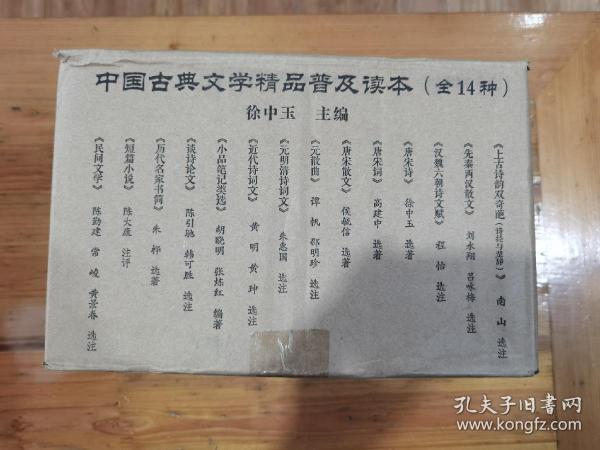 中国古典文学精品普及读本(全14种)
徐中玉 主编
《上古诗韵双奇葩(诗经与楚辞)》 南山 选注
《先秦两汉散文》 刘永翔 吕咏梅 选注
《汉魏六朝诗文赋》 程怡 选注
《唐宋诗》 徐中玉 选著
《唐宋词》 高建中 选著
《唐宋散文》 侯毓信 选著
《元散曲》 谭帆 邵明珍 选注
《元明清诗词文》 朱惠国 选注
《近代诗词文》 黄明 黄珅 选注
《小品笔记类选》 胡晓明 张炼红 编著
《谈诗论文》 陈引驰 韩可胜 选注
《历代名家书简》 朱桦 选著
《短篇小说》 陈大康 注评
《民间文学》 陈勤建 常峻 黄景春 选注
孔夫子旧书网
www.kongfz.com